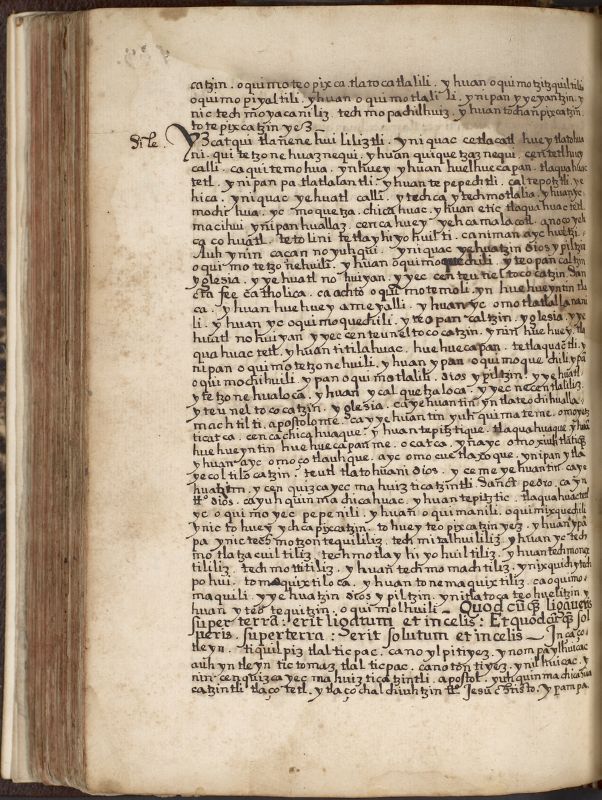 catzin. oqui mo teo pix ca tlato catlalili. yhuan oqui mo tzitzquiltili
oqui mo piyaltili. yhuan oqui mo tlali li. ynipan y yeyantzin. y
nic tech mo yacaniliz. tech mo pachilhuiz. yhuan tochan pixcatzin.
to te pixcatzin yez
Yzcatqui tlanenehuililiztli. yniquac ce tlacatl huey tlatohua
ni. qui tetzonehuaznequi. yhuan qui quetzaznequi. centetl huey
calli. ca qui temohua. yn huey yhuan huelhuecapan. tlaquahuac
tetl. ynipan pa tlatlalantli. yhuan tepepechtli. caltepotztli. ye
hica. yniquac yehuatl calli. ytech ca ytech motlalia. yhuan yc
mochihua. yc moquetza. chicahuac. yhuan etic tlaquahuac tetl.
macihui ynipan huallaz. cenca huey yehcamalacotl. anoço yoh
ca co huatl. te tolini te tlayhiyohuilti. caniman ayc huetzi.
Auh ynin ça çan no yuhqui. yniquac yehuatzin dios ypiltzin
oqui mo tetzonehuili. yhuan oqui moquechili. yteopancaltzin
yglesia. yyehuatl nohuiyan. yyec centeneltococatzin. san
cta fee catholica. ca achto oqui mo temoli. yn huehueyntin tla
ca. yhuan huehuey ameyalli. yhuan yc omo tlatlallanani
li. yhuan yc oqui moquechili. yteopancaltzin. yglesia. yye
huatl nohuiyan. yyec centeneltococatzin. ynin huehuey. tla
quahuac tetl. yhuan titilahuac. huehuecapan. tetlaquactli. y
nipan oqui mo tetzonehuili. yhuan ypan oqui moquechili. ypã
oqui mochihuili. ypan oqui motlalili. dios ypiltzin. yyehuatl
ytetzonehualoca. yhuan ycalquetzaloca. yyec necentlaliliz.
yteuneltococatzin. yglesia. ca yehuantin yn tlateochihualla.
machtilti. apostolome. ca yyehuantin yuhqui mateme. omoyetz
ticatca. cenca chicahuaque. yhuan tepitztique. tlaquahuaque. yhuã
huehueyntin huehuecapanme. ocatca. ynayc omoxiuhtlatique
yhuan ayc omoçotlauhque. ayc omocuetlaxoque. ynipan ytla
yecoltilocatzin. teutl tlatohuani dios. ycemeyehuantin. caye
huatzin. ycenquizcayecmahuizticatzintli. Sanct pedro. ca yn
tt.º dios. ca yuhquinma chicahuac. yhuan tepitztic. tlaquahuac tetl
yc oqui moyecpepenili. yhuan oqui manili. oqui mixquechili
ynic to huey ychcapixcatzin. to huey teopixcatzin yez. yhuan ypã
pa ynic tech motzontequililiz. tech mitalhuililiz. yhuan yc tech
mo tlatzacuiltiliz. tech motlayhiyohuiltiliz. yhuan tech monex
tililiz. tech mottitiliz. yhuan tech momachtiliz. ynixquich ytech
pohui. tomaquixtiloca. yhuan tonemaquixtiliz. ca oqui mo
maquili. yyehuatzin dios ypiltzin. yn itlatoca tehuelitzin y
huan ytech tequitzin. oqui molhuili Quod cũqz ligaueris
super terra: erit ligatum et in celis: Et quodcũqz sol
ueris. super terra: erit solutum et in celis In caço
tleyn. tiquilpiz tlalticpac. cano ylpitiyez. ynompa ylhuicac
auh yn tleyn tictomaz tlalticpac. cano tontiyez. yn ilhuicac. y
nin cenquizcayecmahuizticatzintli. apostol. yuhquinma chicahua
catzintli tlaço tetl. ytlaço chalchiuhtzin tt.º Jesu christo. ypampa.